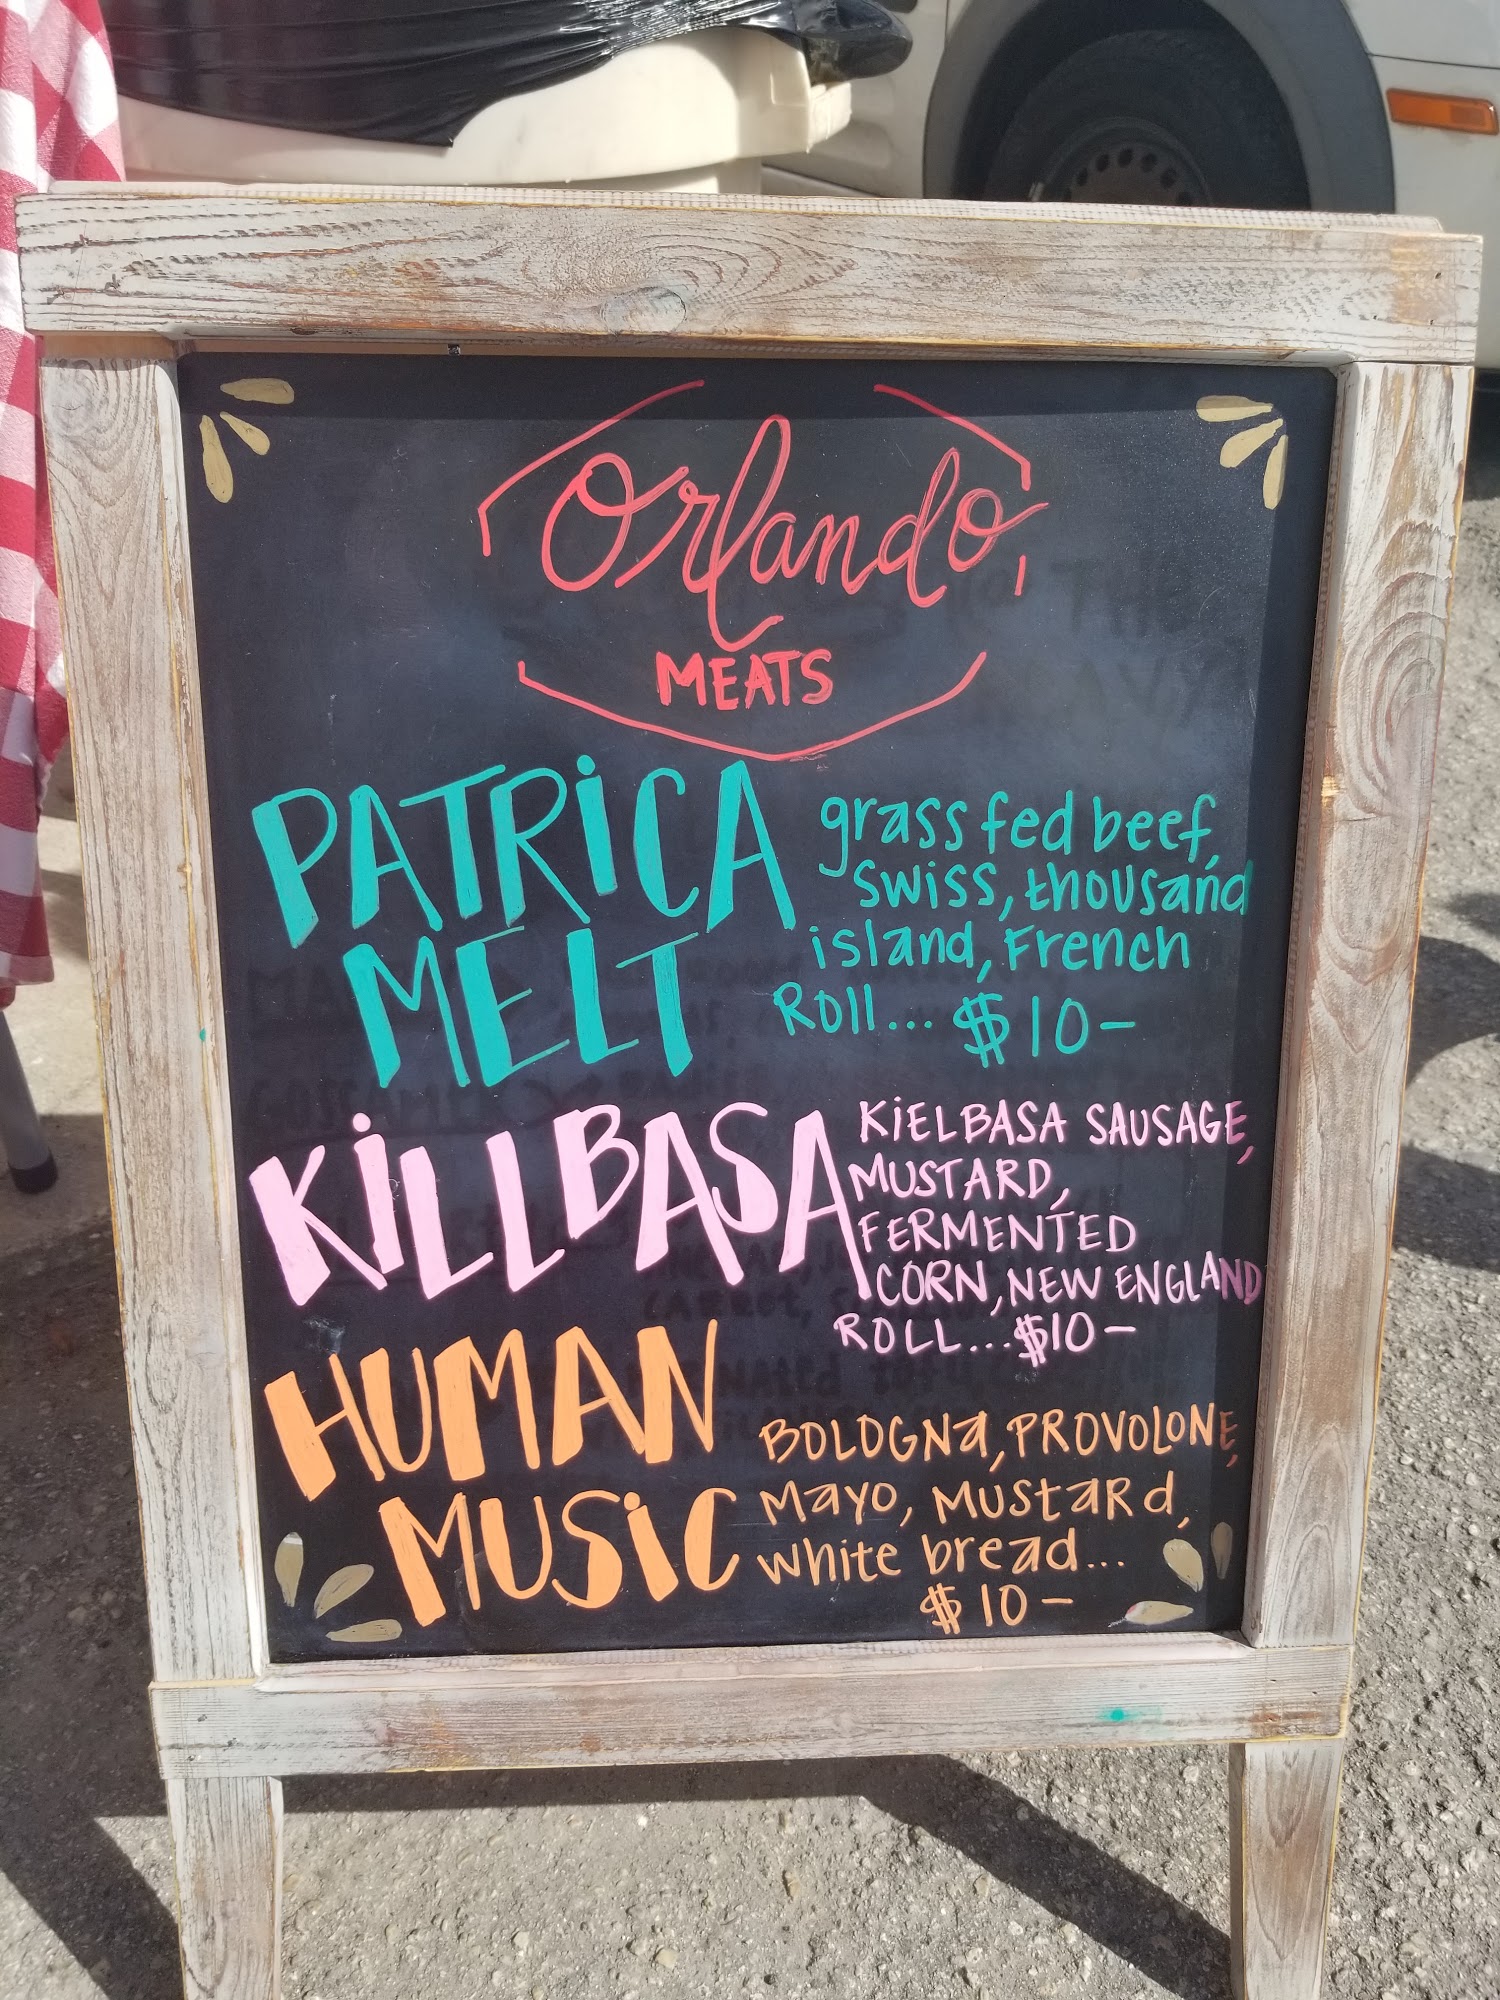 Orlando
MEATS
PATRiCA
MELT
grass fed beef,
swiss, thousand
island, French
Roll... $10-
KiLLBASA
KiELBASA SAUSAGE,
MUSTARD,
FERMENTED
CORN, NEW ENGLAND
ROLL...$10-
HUMAN
MUSiC
BOLOGNa, PROVOLONE,
Mayo, MUStaRd,
white bread...
$10-